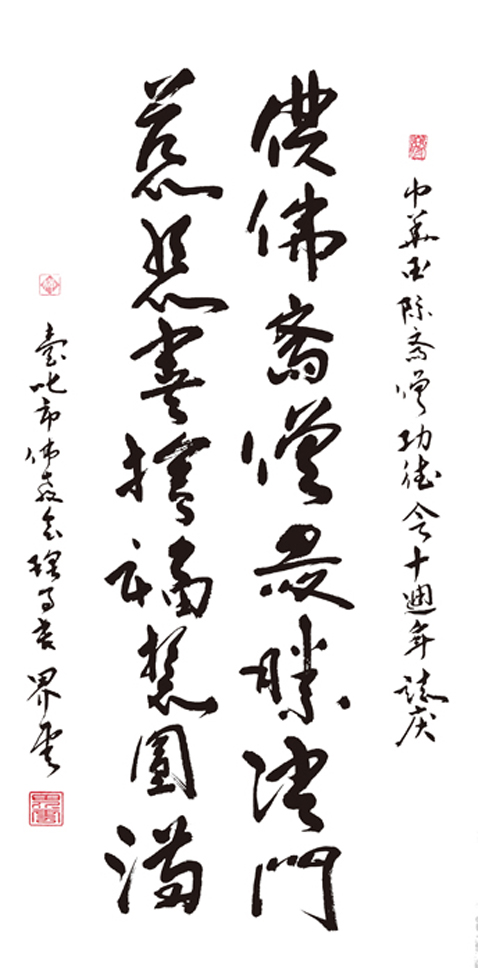 中華國際齋僧功德會十週年誌慶
供佛齋僧最勝法門
慈悲喜捨福慧圓滿
臺北市佛教會理事長 界雲